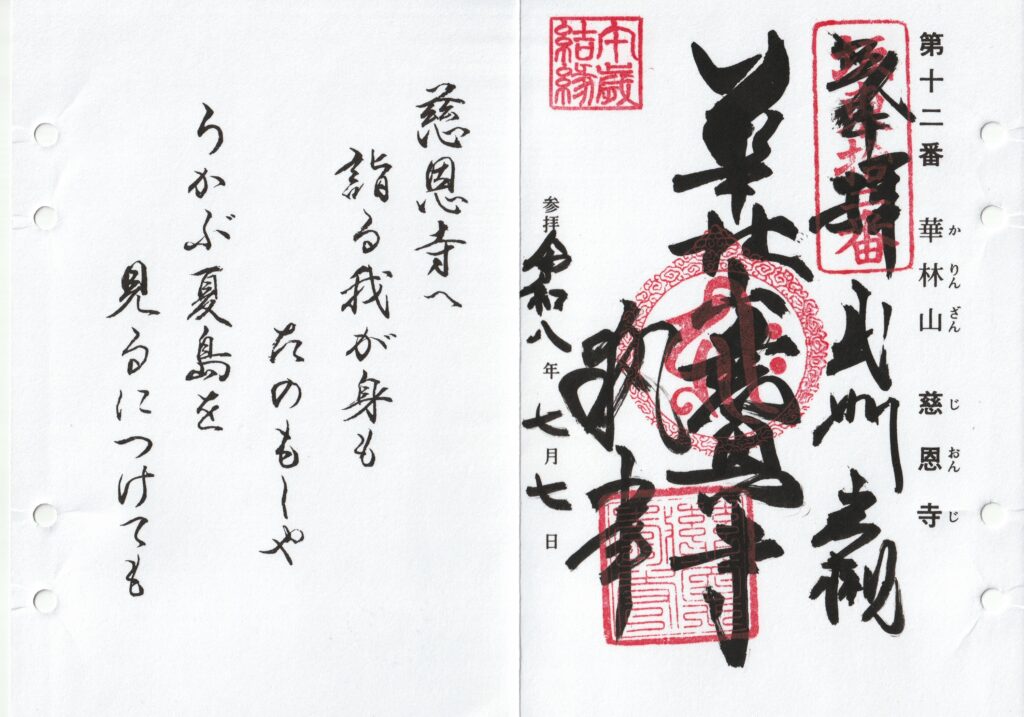 第十二番 華林山 慈恩寺
か りん ざん じ おん じ
坂東拾二番
奉拝 武州岩槻
華林山慈恩寺
執事
午歳
結縁
参拝 令和八年七月七日
慈恩寺へ
詣る我が身も
たのもしや
うかぶ夏島を
見るにつけても